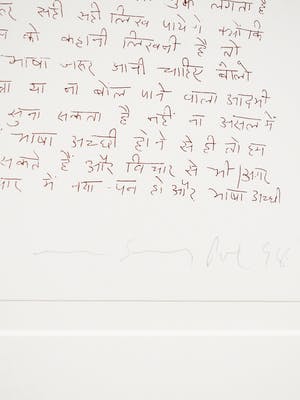 लगता है
सही सही लिख पायेंगे क्योंकि
को कहानी लिखनी है तो
भाषा जरूर आनी चाहिए बोलो
या ना बोल पाने वाला आदमी
सुना सकता है नहीं ना असल में
भाषा अच्छी होने से ही तो हम
सकते हैं और विचार से भी अगर
में नया-पन हो और भाषा अच्छी